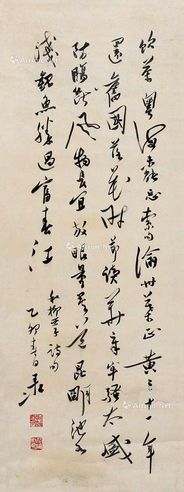 飲茶粵海未能忘索句渝州葉正黃三十一年
還舊國落花時節讀華章牢騷太盛
防腸斷風物長宜放眼量莫道昆明池水
淺觀魚勝過富春江
和柳
乙卯春日